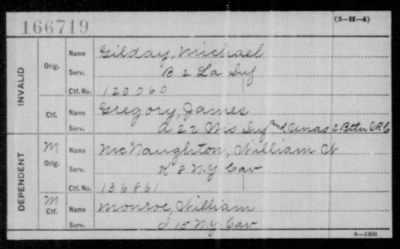 166719
(3-H-4)
INVALID
Orig. Name Gilday, Michael
Serv. B 2 La Inf
Ctf. No. 120060
Ctf. Name Gregory, James
Serv. D 22 Wis Inf & Unas 2 Battn VRC
DEPENDENT
M Orig. Name McNaughton, William
Serv. K 8 N.Y Cav
Ctf. No. 136861
M Ctf. Name Monroe, William
Serv. I 15 N.Y Cav